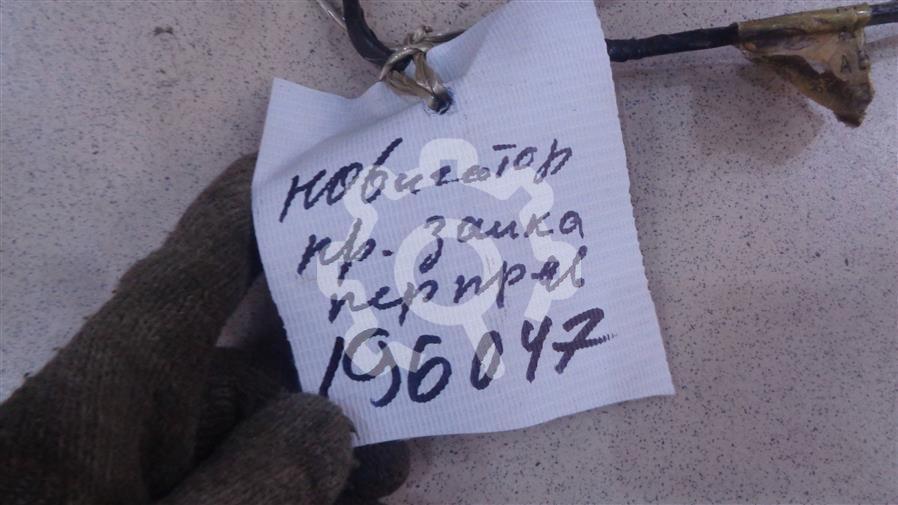 новигатор
кр. замка
пер прав
196047